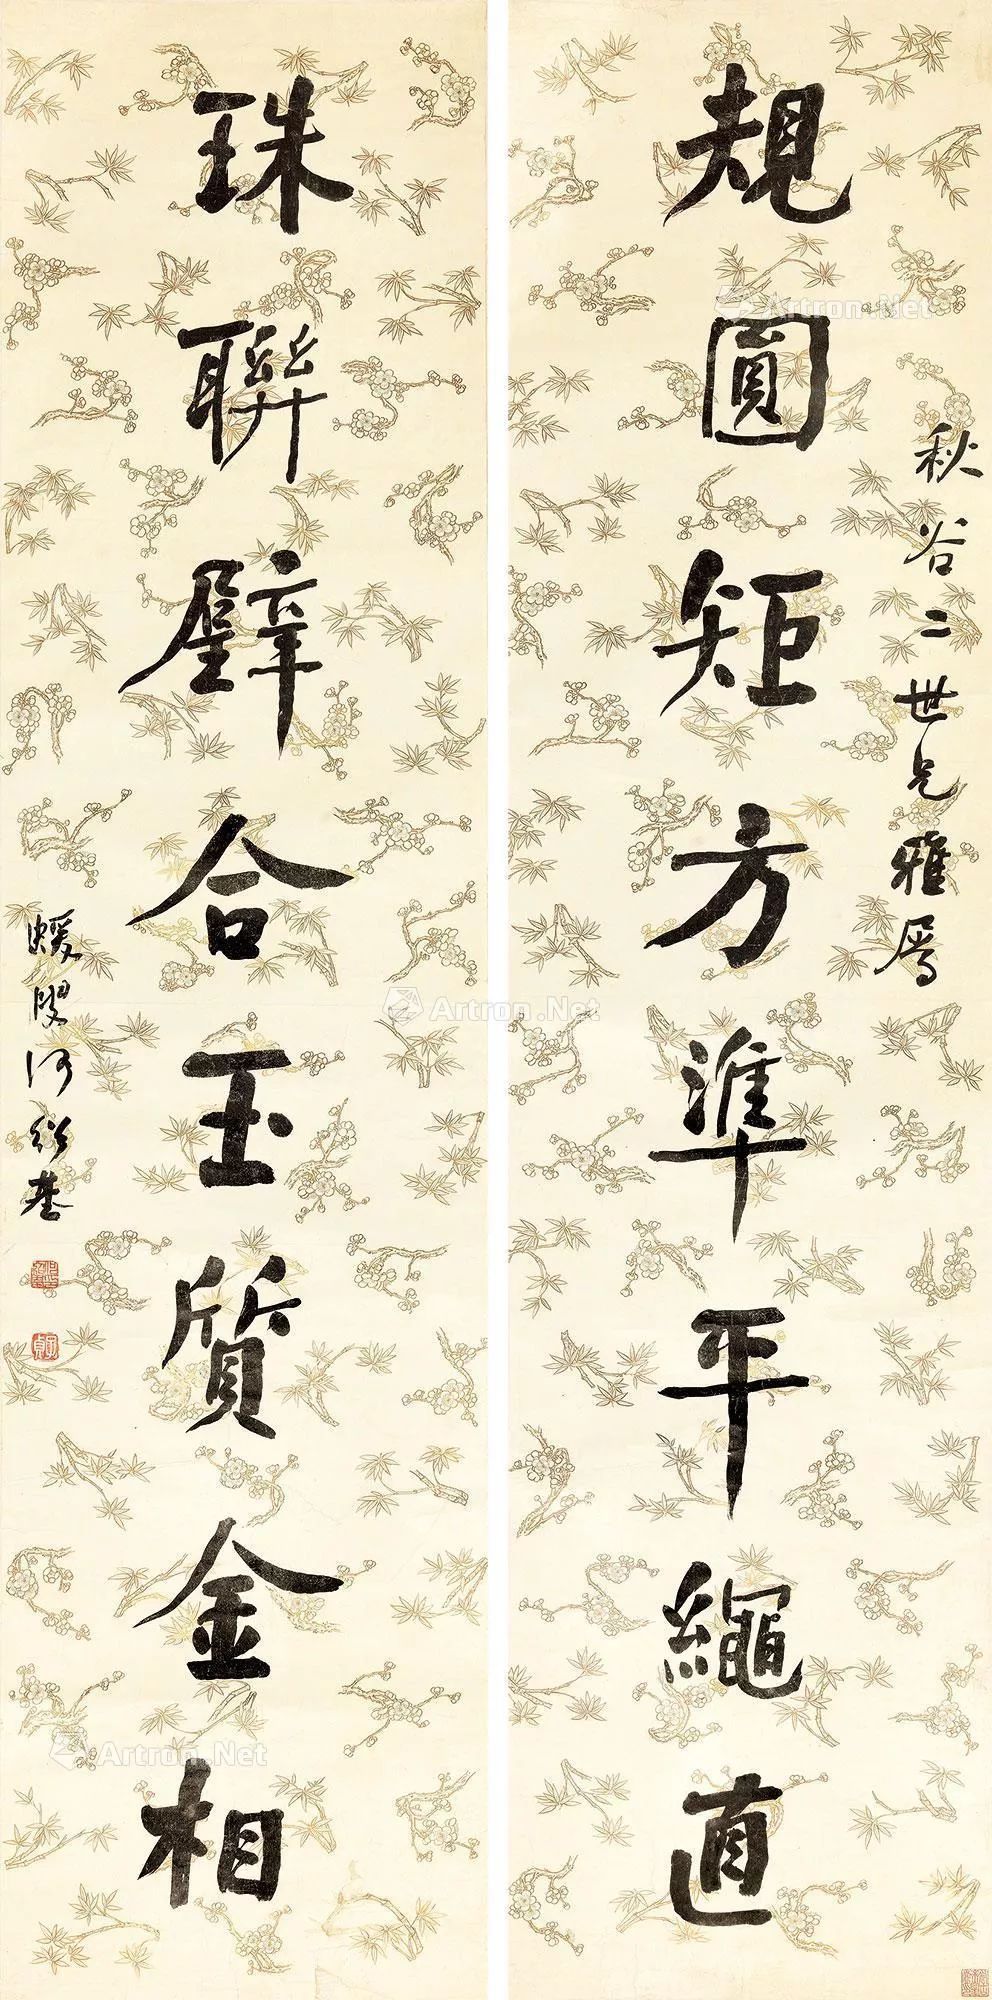 規圓矩方準平繩直
秋谷二世兄雅屬
珠聯璧合玉質金相
蝯叟何紹基
Artron.Net
Artron.Net
Artron.Net